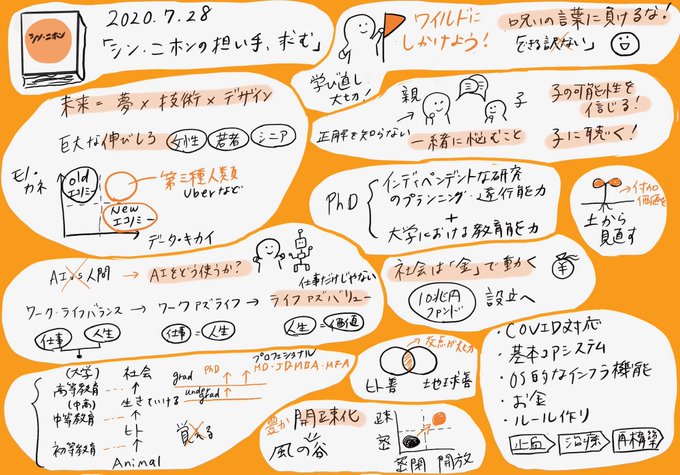 シン・ニホン
2020.7.28
「シン・ニホンの担い手、求む」
ワイルドに
しかけよう!
学び直し
大切!
呪いの言葉に負けるな!
親
子
正解を知らない
一緒に悩むこと
子の可能性を
信じる!
子に聴く!
未来=夢×技術×デザイン
巨大な伸びしろ
女性
若者
シニア
モノ・
カネ
old
エコノミー
第三種人類
Uberなど
New
エコノミー
データ・キカイ
PhD
インディペンデントな研究
のプランニング・遂行能力
+
大学における教育能力
付加
価値を
土から
見直す
AI vs 人間
→
AIをどう使うか?
仕事だけじゃない
ワーク・ライフバランス
→
ワーク アズ ライフ
→
ライフ アズ バリュー
仕事
人生
仕事=人生
人生=価値
社会は「金」で動く
¥
10兆円
ファンド
設立へ
(大学)
高等教育
(中高)
中等教育
初等教育
社会
生きていける
ヒト
Animal
grad
under
grad
PhD
プロフェショナル
MD・JD・MBA・MFA
交点が大切
ヒト善
地球善
豊か
開疎化
風の谷
疎
密
密閉
開放
・COVID対応
・基本コアシステム
・OS的なインフラ機能
・お金
・ルール作り
止血
治療
再構築